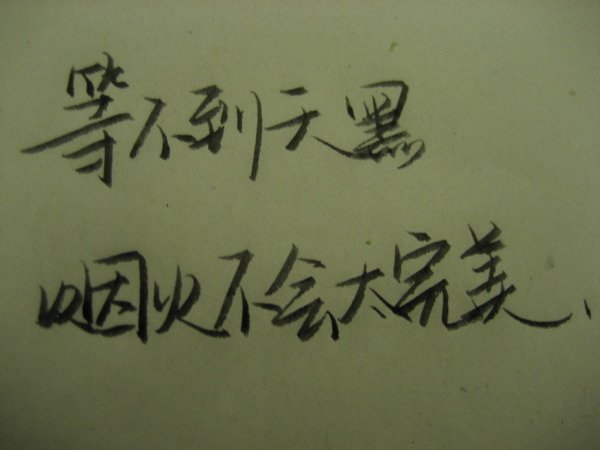 等不到天黑
烟火不会太完美、